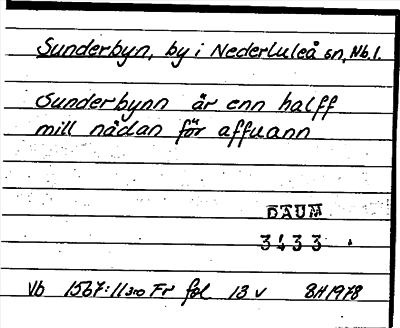 Sunderbyn, by i Nederluleå sn, Nb.l.
Sunderbynn är enn halff
mill nådan för affuann
DAUM
3433
Vb 1567:11 Fr fol 13 v 8H1978